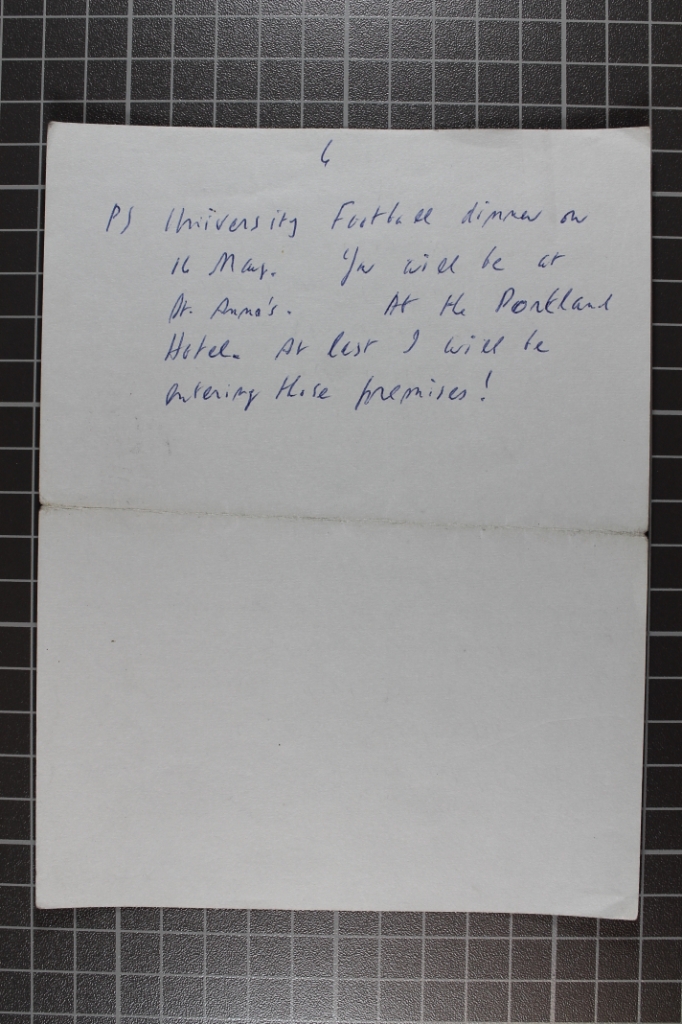 6
PS University Football dinner on
16 May. You will be at
St. Anna's. At the Portland
Hotel. At last I will be
entering those premises!